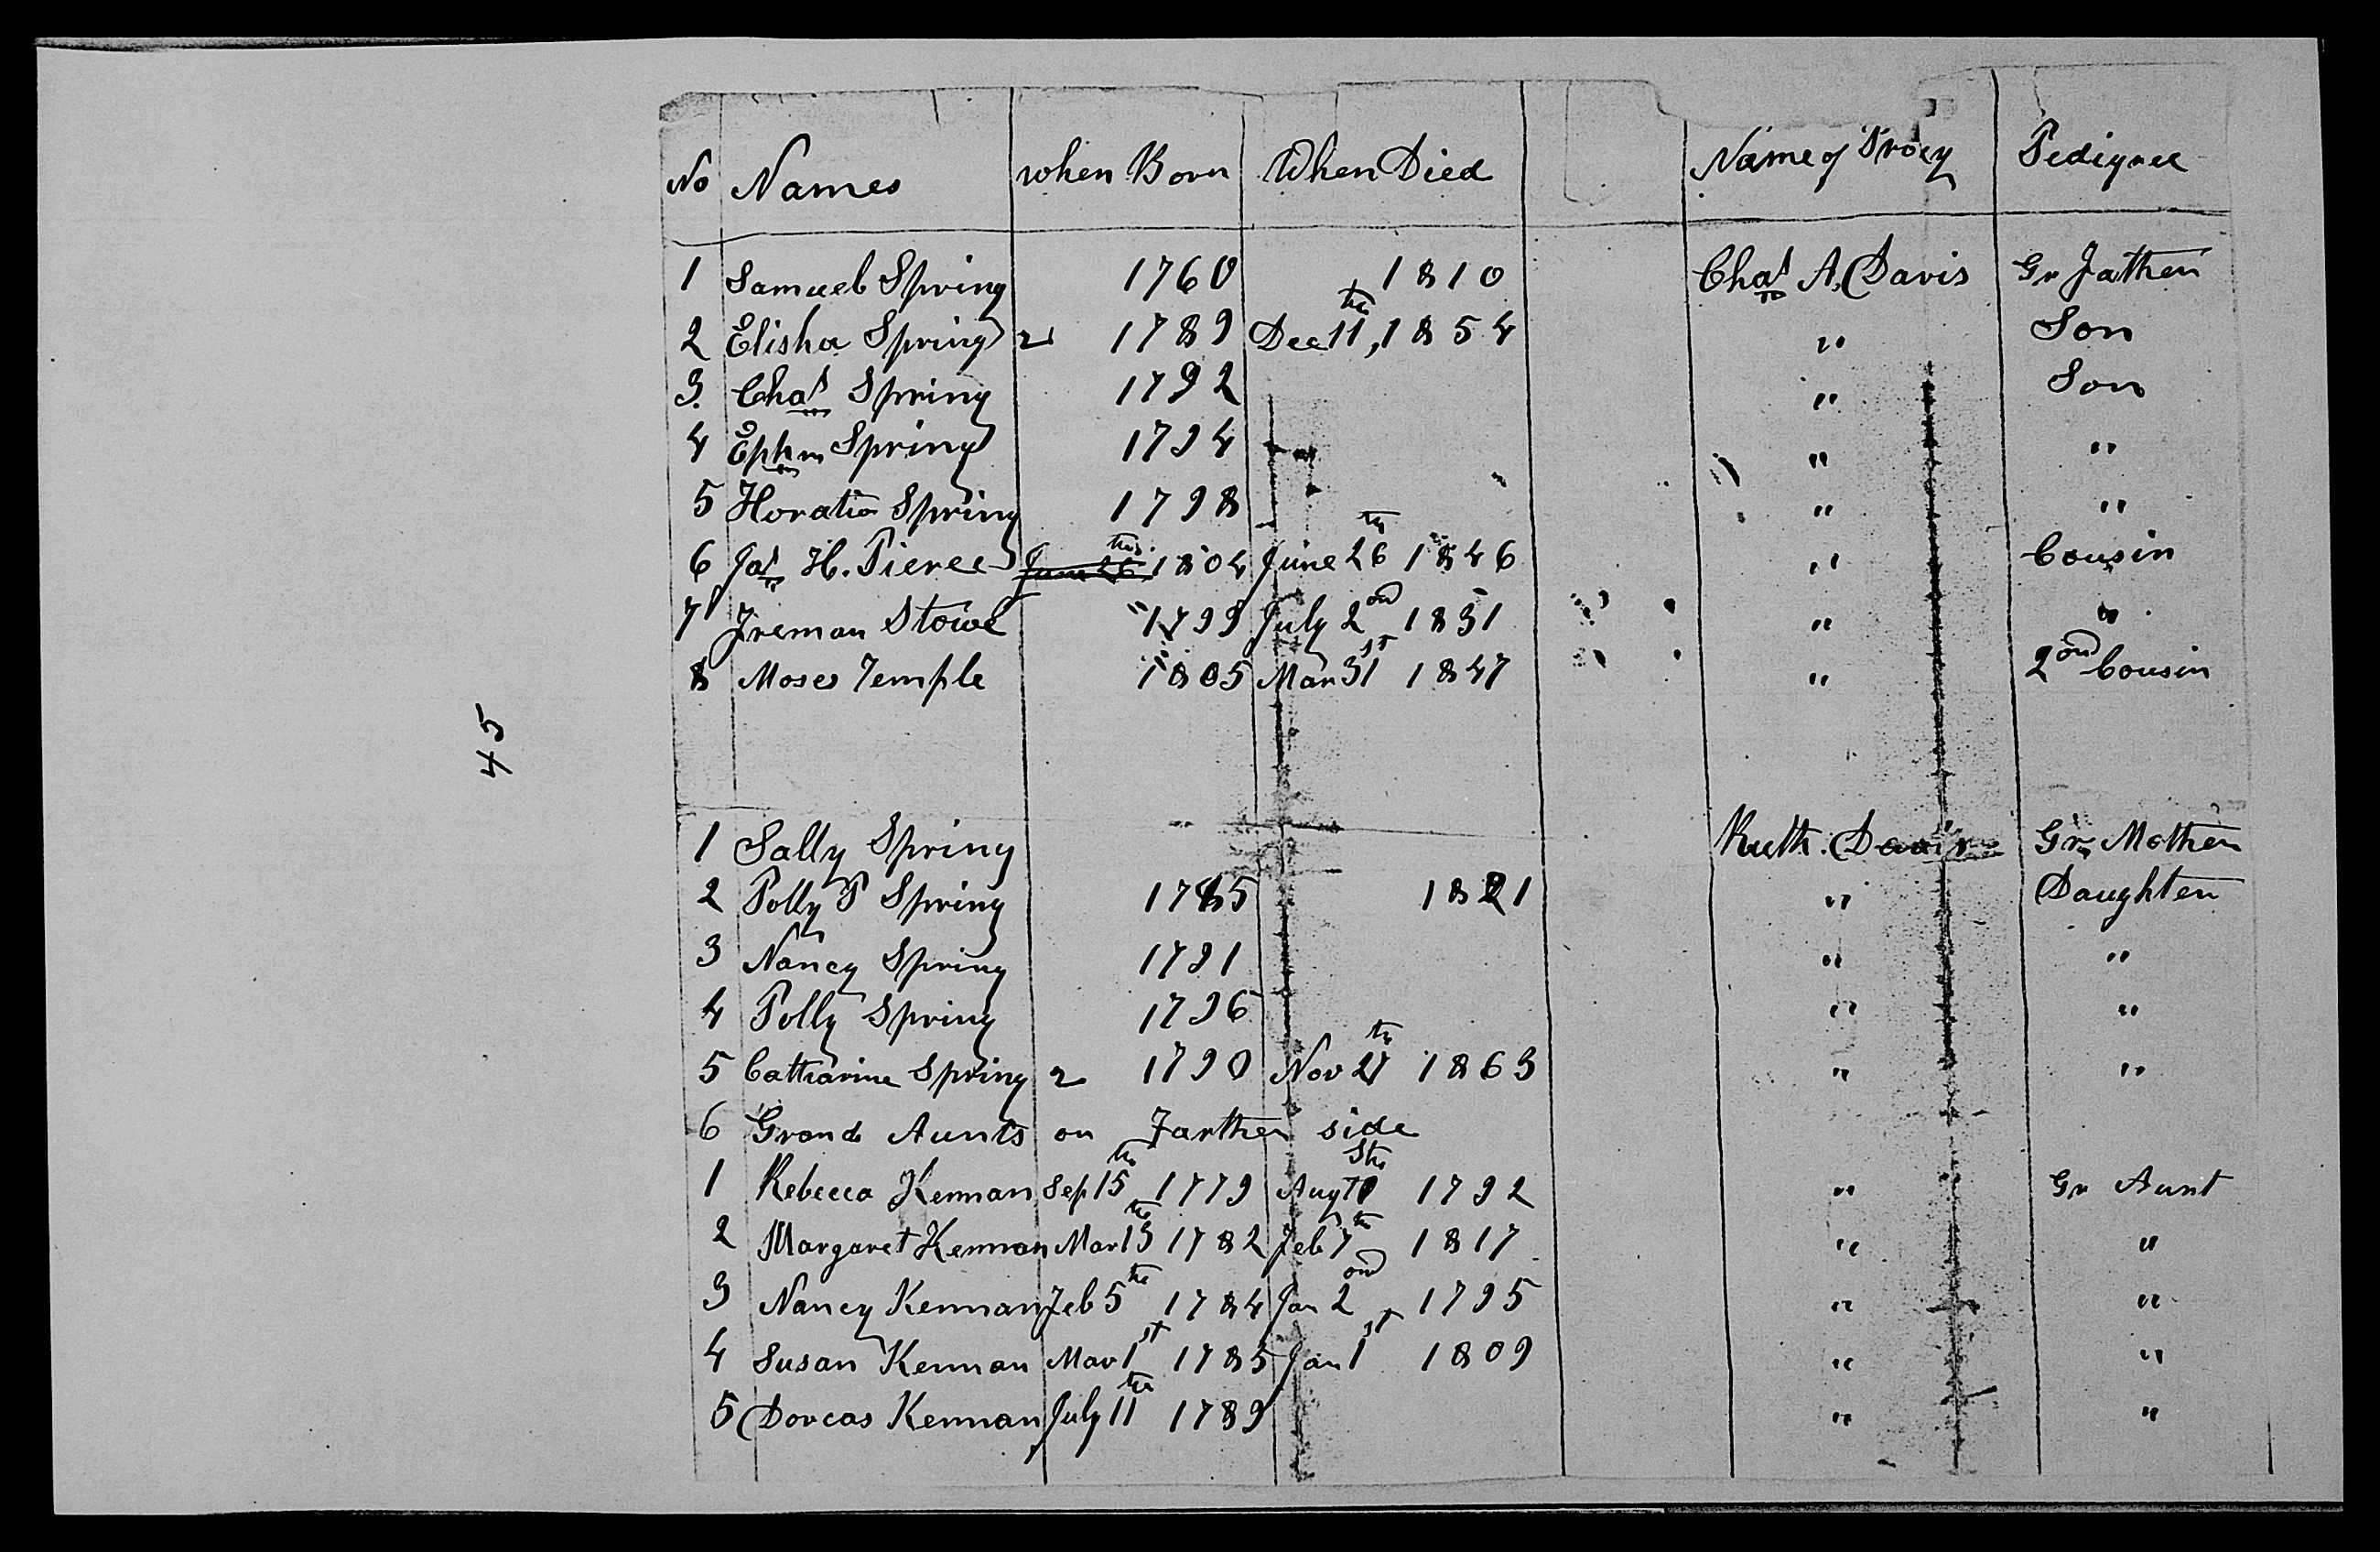 No Names when Born When Died Name of Proxy Pedigree
1 Samuel Spring 1760 1810 Chas A. Davis Gr Father
2 Elisha Spring 2 1789 Dec 11th, 1854 " Son
3. Chas Spring 1792 " Son
4 Ephm Spring 1794 " "
5 Horatio Spring 1798 " "
6 Jas H. Pierce June 26th 1804 June 26th 1846 " Cousin
7 Freman Stowe 1799 July 2ond 1831 " "
8 Moses Temple 1805 Mar 31st 1847 " 2ond Cousin
45
1 Sally Spring Ruth Davis Gr Mother
2 Polly P Spring 1785 1821 " Daughter
3 Nancy Spring 1791 " "
4 Polly Spring 1796 " "
5 Catharine Spring 2 1790 Nov 27th 1863 " "
6 Grand Aunts on Farther side
1 Rebecca Kennan Sep 15th 1779 Aug 1792 " Gr Aunt
2 Margaret Kennan Mar 13th 1782 Feb 7th 1817 " "
3 Nancy Kennan Feb 5th 1784 Jan 2ond 1795 " "
4 Susan Kennan Mar 1st 1785 Jan 1st 1809 " "
5 Dorcas Kennan July 11th 1789 " "